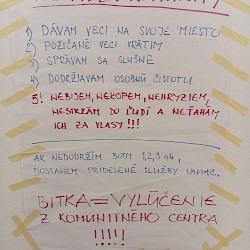 1) DÁVAM VECI NA SVOJE MIESTO
2) POŽIČANÉ VECI VRÁTIM
3) SPRÁVAM SA SLUŠNE
4) DODRŽIAVAM OSOBNÚ ČISTOTU
5! NEBIJEM, NEKOPEM, NEHRYZIEM,
NESTRKÁM DO ĽUDÍ A NEŤAHÁM
ICH ZA VLASY!!!
AK NEDODRŽÍM BODY 1,2,3 a 4,
DOSTANEM PRIDELENÉ SLUŽBY NAVIAC.
BITKA = VYLÚČENIE
Z KOMUNITNÉHO CENTRA
!!!!!